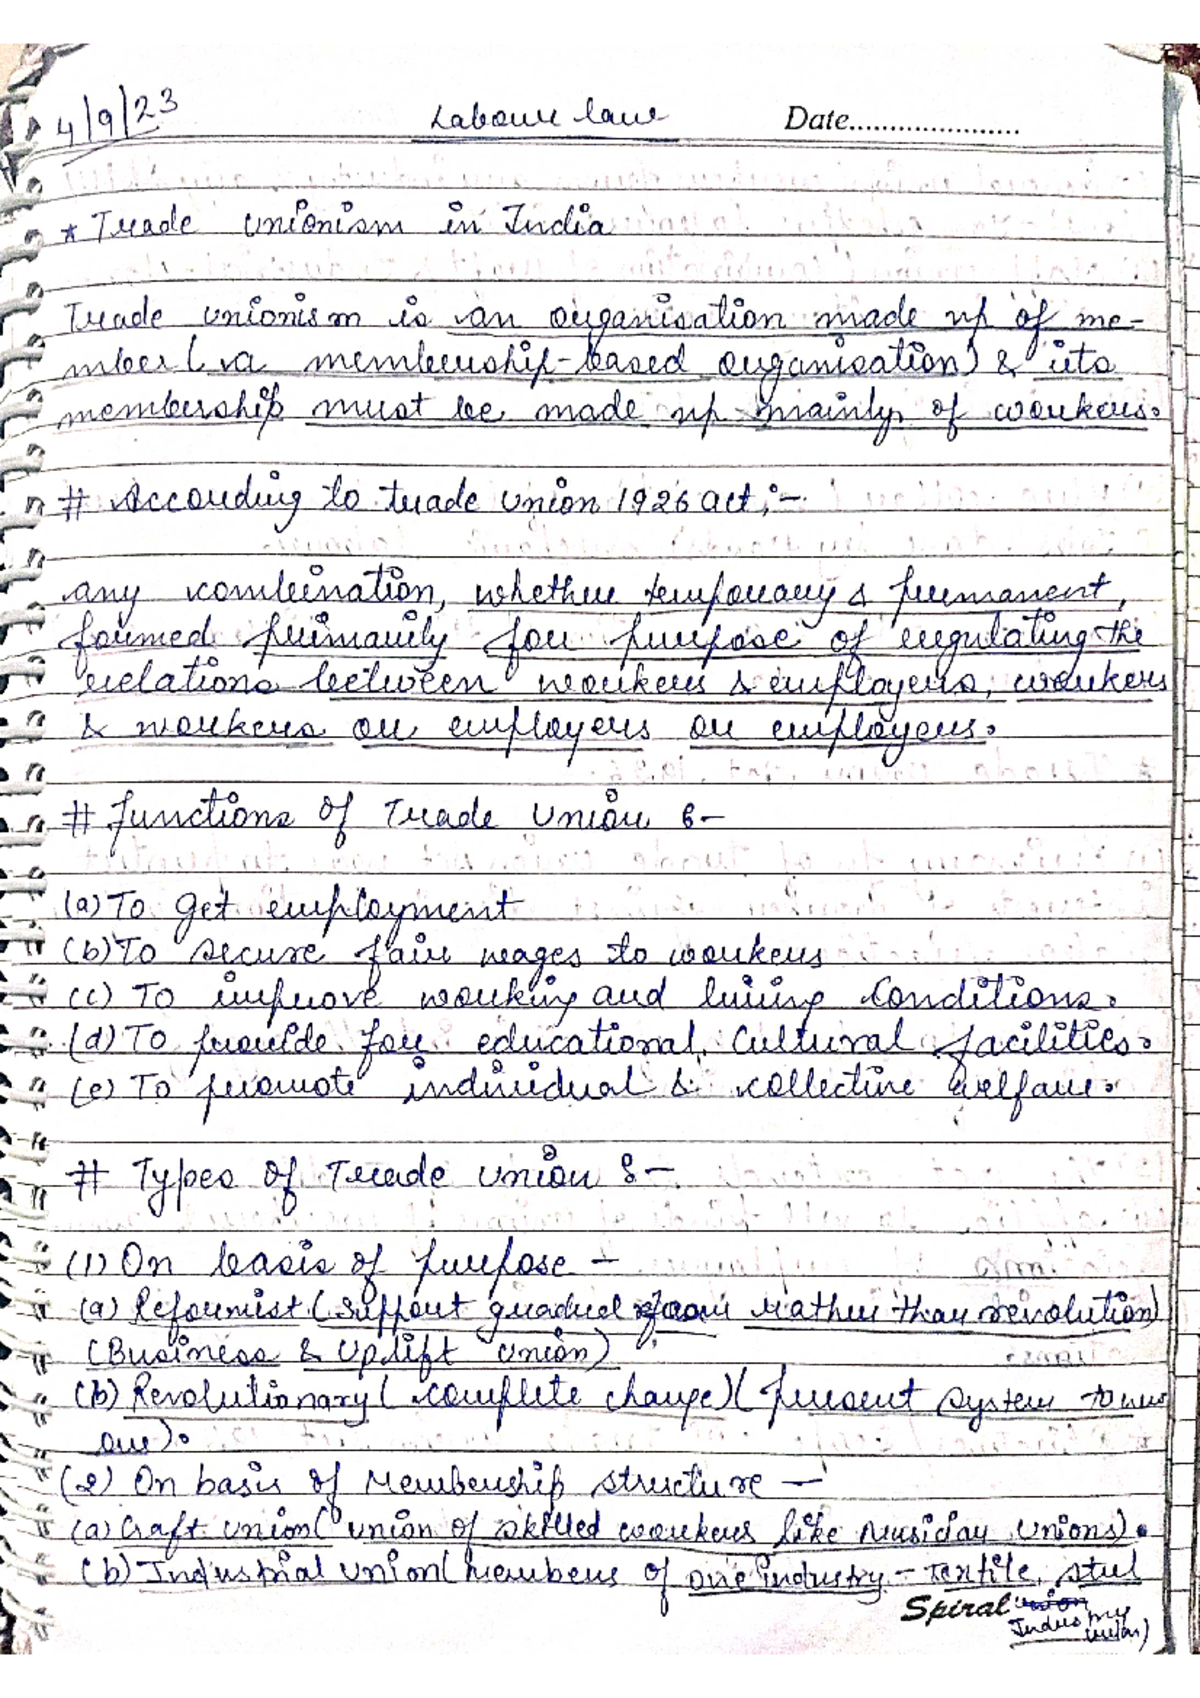 4/9/23
Labour law Date.....................
* Trade unionism in India
Trade unionism is an organisation made up of me-
mber (a membership-based organisation) & its
membership must be made up mainly of workers.
# According to trade union 1926 act :-
any combination, whether temporary & permanent,
formed primarily for purpose of regulating the
relations between workers & employers, workers
& workers or employers or employers.
# functions of Trade Union :-
(a) To get employment
(b) To secure fair wages to workers
(c) To improve working and living Conditions.
(d) To provide for educational, Cultural facilities.
(e) To promote individual & collective welfare.
# Types of Trade union :-
(1) On basis of purpose -
(a) Reformist (Support gradual rather than revolution)
(Business & Uplift union)
(b) Revolutionary (complete change) (present system to new
one).
(2) On basis of Membership structure -
(a) Craft union (union of skilled workers like Unions).
(b) Industrial union (Members of one industry - Textile,
Spiral union
Indus
union)